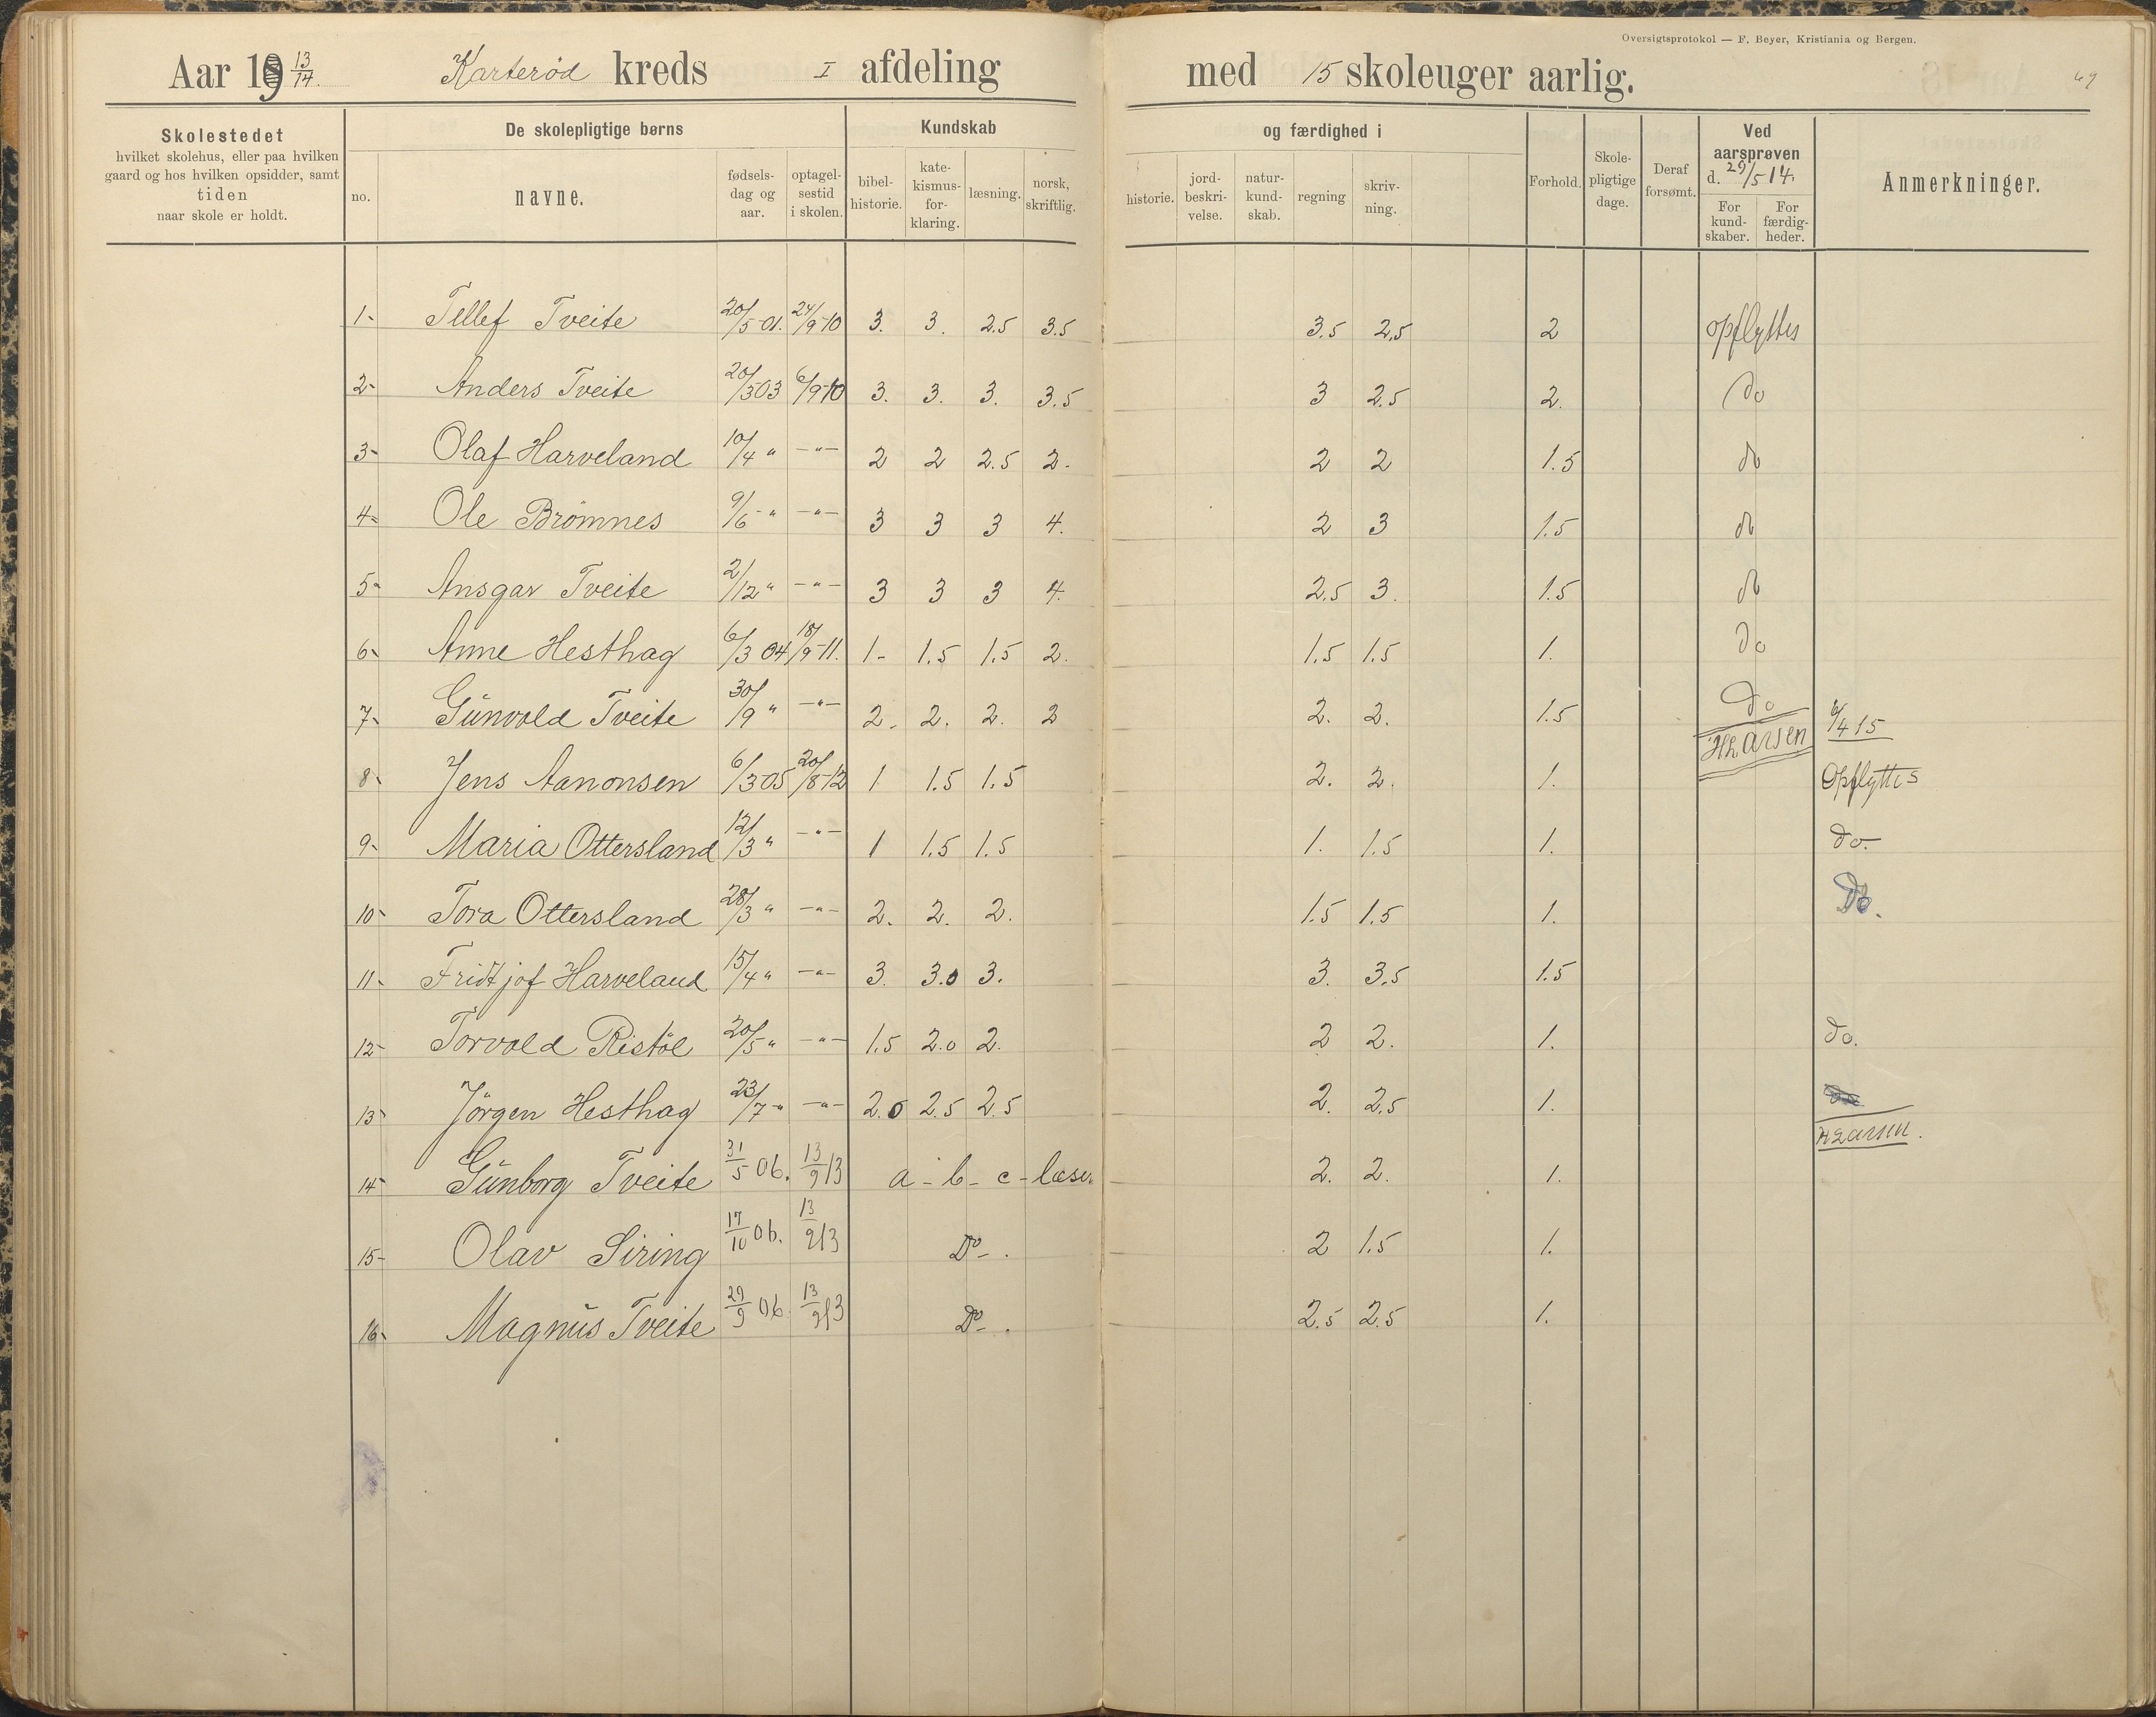 Oversigtsprotokol — F. Beyer, Kristiania og Bergen.
Aar 19 13/14. Karterød kreds I afdeling med 15 skoleuger aarlig. 69
Skolestedet
hvilket skolehus, eller paa hvilken
gaard og hos hvilken opsidder, samt
tiden
naar skole er holdt.
De skolepligtige børns
no. navne. fødsels-dag og aar. optagel-sestid i skolen.
Kundskab og færdighed i
bibel-historie. kate-kismus-for-klaring. læsning. norsk, skriftlig. historie. jord-beskri-velse. natur-kund-skab. regning skriv-ning.
Forhold. Skole-pligtige dage. Deraf forsømt.
Ved aarsprøven d. 29/5 14.
For kund-skaber. For færdig-heder.
Anmerkninger.
1- Tellef Tveite 20/5-01. 24/9-10 3. 3. 2.5 3.5 3.5 2.5 2 opflyttes
2- Anders Tveite 20/3 03 6/9-10 3. 3. 3. 3.5 3 2.5 2. do
3- Olaf Harveland 10/4 " -"- 2 2 2.5 2. 2 2 1.5 do
4- Ole Brømnes 9/6-" -"- 3 3 3 4. 2 3 1.5 do
5- Ansgar Tveite 2/12 " -"- 3 3 3 4. 2.5 3. 1.5 do
6- Anne Hesthag 6/3 04 18/9-11. 1- 1.5 1.5 2. 1.5 1.5 1. do
7- Gunvald Tveite 30/9 " -"- 2. 2. 2. 2 2. 2. 1.5 do 6/4 15
HLarsen
8- Jens Aanonsen 6/3 05 20/8-12 1 1.5 1.5 2. 2. 1. Opflyttes
9- Maria Ottersland 12/3 " -"- 1 1.5 1.5 1. 1.5 1. do.
10- Tora Ottersland 28/3 " -"- 2. 2. 2. 1.5 1.5 1. Do.
11- Fridtjof Harveland 15/4 " -"- 3. 3.0 3. 3. 3.5 1.5
12- Torvald Ristöl 20/5 " -"- 1.5 2.0 2. 2 2. 1. do.
13- Jörgen Hesthag 23/7-" -"- 2.0 2.5 2.5 2. 2.5 1. do
HLarsen.
14- Gunborg Tveite 31/5 06. 13/9 13 a-b-c-læser 2. 2. 1.
15- Olav Siring 17/10 06. 13/9 13 Do-. 2 1.5 1.
16- Magnus Tveite 29/9 06. 13/9 13 Do-. 2.5 2.5 1.